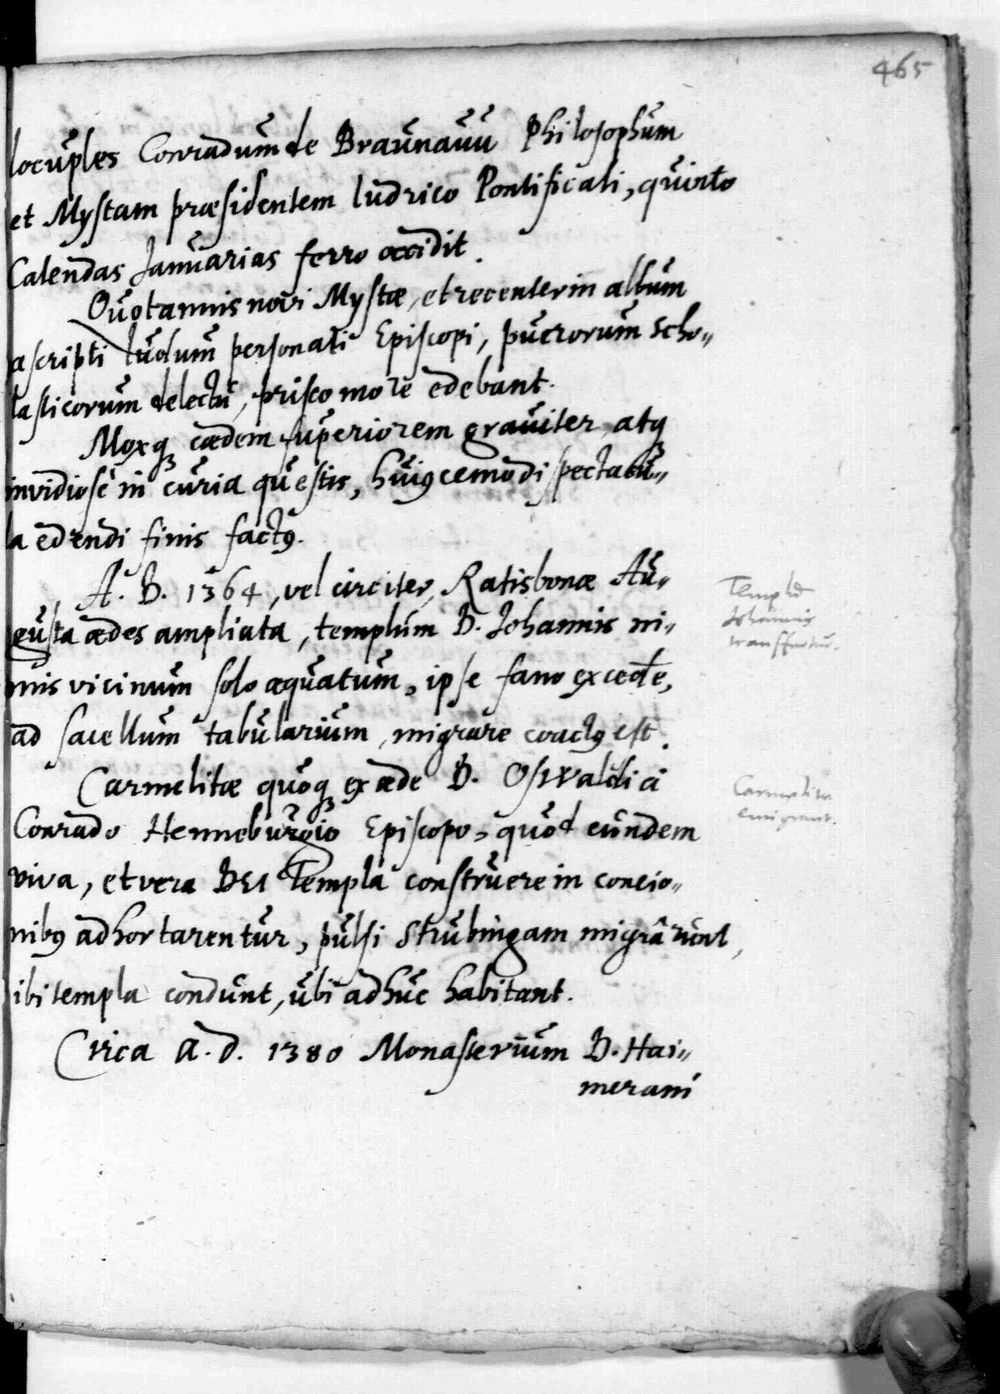 465
locuples Conradum de Braunauu Philosophum
et Mystam præsidentem ludrico Pontificali, quinto
Calendas Januarias ferro occidit.
Quotannis novi Mystæ, et recenter in album
ascripti ludum personati Episcopi, puerorum scho„
lasticorum delectu, prisco more edebant.
Moxq cædem superiorem graviter atq
invidiosè in curia questis, huiq cemodi spectacu„
la edendi finis factq.
A. D. 1364, vel circiter, Ratisbonæ Au„
gusta ædes ampliata, templum D. Johannis ni„
mis vicinum solo æquatum, ipse fano excedere,
ad sacellum tabularium, migrare coactq est.
Templum
Johannis
transfertur.
Carmelitæ quoq ex æde D. Oswaldi à
Conrado Henneburgio Episcopo, quod eundem
viva, et vera DEI Templa construere in concio„
nibq adhortarentur, pulsi Strubingam migrârunt,
ibi templa condunt, ubi adhuc habitant.
Carmelitæ
emigrant.
Circa A. D. 1380 Monasterium D. Hai„
merani